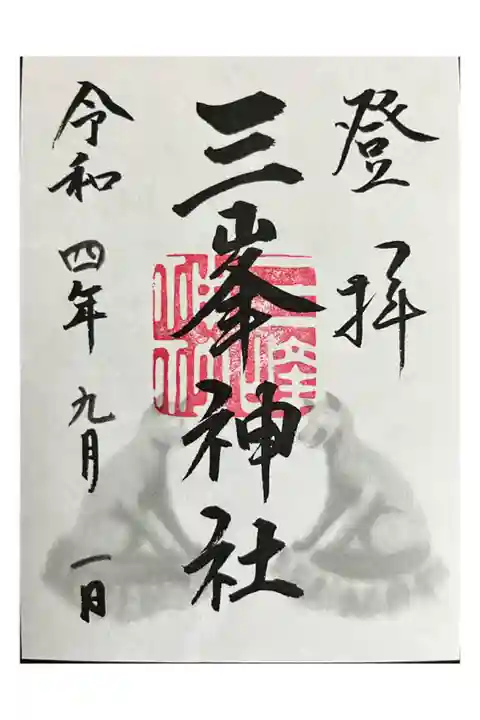 登拝
三峯神社
令和四年九月一日